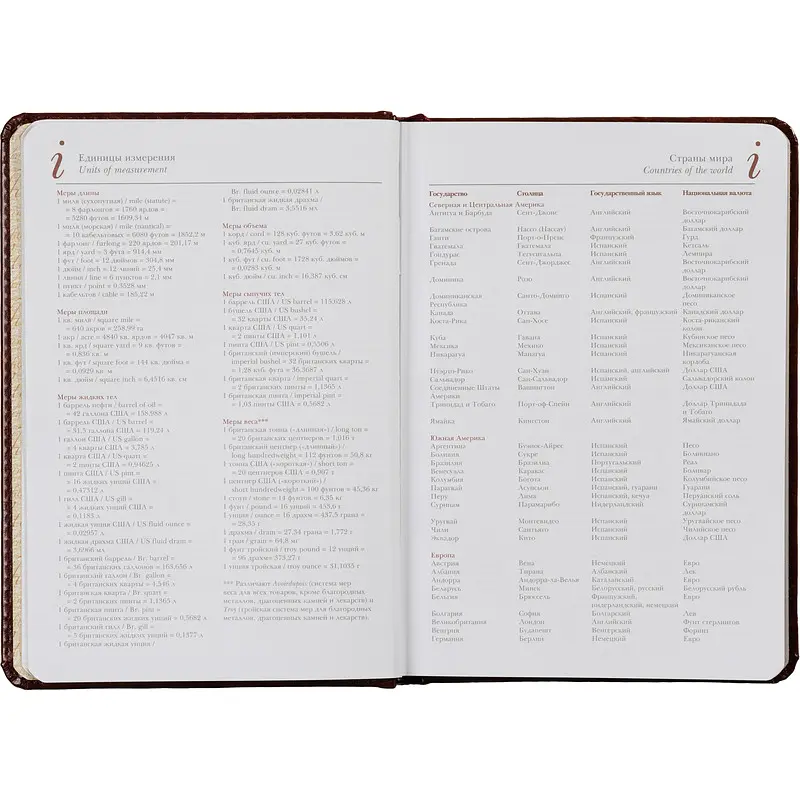 i
Единицы измерения
Units of measurement
Меры длины
1 миля (сухопутная) / mile (statute) =
= 8 фарлонгов = 1760 ярдов =
= 5280 футов = 1609,34 м
1 миля (морская) / mile (nautical) =
= 10 кабельтовых = 6080 футов = 1852,2 м
1 фарлонг / furlong = 220 ярдов = 201,17 м
1 ярд / yard = 3 фута = 914,4 мм
1 фут / foot = 12 дюймов = 304,8 мм
1 дюйм / inch = 12 линий = 25,4 мм
1 линия / line = 6 пунктов = 2,1 мм
1 пункт / point = 0,3528 мм
1 кабельтов / cable = 185,22 м
Меры площади
1 кв. миля / square mile =
= 640 акров = 258,99 га
1 акр / acre = 4840 кв. ярдов = 4047 кв. м
1 кв. ярд / square yard = 9 кв. футов =
= 0,836 кв. м
1 кв. фут / square foot = 144 кв. дюйма =
= 0,0929 кв. м
1 кв. дюйм / square inch = 6,4516 кв. см
Меры жидких тел
1 баррель нефти / barrel of oil =
= 42 галлона США = 158,988 л
1 баррель США / US barrel =
= 31,5 галлона США = 119,24 л
1 галлон США / US gallon =
= 4 кварты США = 3,785 л
1 кварта США / US quart =
= 2 пинты США = 0,94625 л
1 пинта США / US pint =
= 16 жидких унций США =
= 0,47312 л
1 гилл США / US gill =
= 4 жидких унций США =
= 0,1183 л
1 жидкая унция США / US fluid ounce =
= 0,02957 л
1 жидкая драхма США / US fluid dram =
= 3,6966 мл
1 британский баррель / Br. barrel =
= 36 британских галлонов = 163,656 л
1 британский галлон / Br. gallon =
= 4 британских кварты = 4,546 л
1 британская кварта / Br. quart =
= 2 британских пинты = 1,1365 л
1 британская пинта / Br. pint =
= 20 британских жидких унций = 0,5682 л
1 британский гилл / Br. gill =
= 5 британских жидких унций = 0,1377 л
1 британская жидкая унция /
Br. fluid ounce = 0,02841 л
1 британская жидкая драхма /
Br. fluid dram = 3,5516 мл
Меры объема
1 корд / cord = 128 куб. футов = 3,62 куб. м
1 куб. ярд / cu. yard = 27 куб. футов =
= 0,7645 куб. м
1 куб. фут / cu. foot = 1728 куб. дюймов =
= 0,0283 куб. м
1 куб. дюйм / cu. inch = 16,387 куб. см
Меры сыпучих тел
1 баррель США / US barrel = 115,628 л
1 бушель США / US bushel =
= 32 кварты США = 35,24 л
1 кварта США / US quart =
= 2 пинты США = 1,101 л
1 пинта США / US pint = 0,5506 л
1 британский (имперский) бушель /
imperial bushel = 32 британских кварты =
= 1,28 куб. фута = 36,3687 л
1 британская кварта / imperial quart =
= 2 британских пинты = 1,1365 л
1 британская пинта / imperial pint =
= 1,03 пинты США = 0,5682 л
Меры веса***
1 британская тонна («длинная») / long ton =
= 20 британских центнеров = 1,016 т
1 британский центнер(«длинный») /
long hundredweight = 112 фунтов = 50,8 кг
1 тонна США («короткая») / short ton =
= 20 центнеров США = 0,907 т
1 центнер США («короткий») /
short hundredweight = 100 фунтов = 45,36 кг
1 стоун / stone = 14 фунтов = 6,35 кг
1 фунт / pound = 16 унций = 453,6 г
1 унция / ounce = 16 драхм = 437,5 грана =
= 28,35 г
1 драхма / dram = 27,34 грана = 1,772 г
1 гран / grain = 64,8 мг
1 фунт тройский / troy pound = 12 унций =
= 96 драхм 373,27 г
1 унция тройская / troy ounce = 31,1035 г
*** Различают Avoirdupois (система мер
веса для всех товаров, кроме благородных
металлов, драгоценных камней и лекарств) и
Troy (тройская система мер для благородных
металлов, драгоценных камней и лекарств).
Страны мира
Countries of the world
i
Государство Столица Государственный язык Национальная валюта
Северная и Центральная Америка
Антигуа и Барбуда Сент-Джонс Английский Восточнокарибский
доллар
Багамские острова Нассо (Нассау) Английский Багамский доллар
Гаити Порт-о-Пренс Французский Гурд
Гватемала Гватемала Испанский Кетсаль
Гондурас Тегусигальпа Испанский Лемпира
Гренада Сент-Джорджес Английский Восточнокарибский
доллар
Доминика Розо Английский Восточнокарибский
доллар
Доминиканская Санто-Доминго Испанский Доминиканское
Республика песо
Канада Оттава Английский, французский Канадский доллар
Коста-Рика Сан-Хосе Испанский Коста-риканский
колон
Куба Гавана Испанский Кубинское песо
Мексика Мехико Испанский Мексиканское песо
Никарагуа Манагуа Испанский Никарагуанская
кордоба
Пуэрто-Рико Сан-Хуан Испанский, английский Доллар США
Сальвадор Сан-Сальвадор Испанский Сальвадорский колон
Соединенные Штаты Вашингтон Английский Доллар США
Америки
Тринидад и Тобаго Порт-оф-Спейн Английский Доллар Тринидада
и Тобаго
Ямайка Кингстон Английский Ямайский доллар
Южная Америка
Аргентина Буэнос-Айрес Испанский Песо
Боливия Сукре Испанский Боливиано
Бразилия Бразилиа Португальский Реал
Венесуэла Каракас Испанский Боливар
Колумбия Богота Испанский Колумбийское песо
Парагвай Асунсьон Испанский, гуарани Гуарани
Перу Лима Испанский, кечуа Перуанский соль
Суринам Парамарибо Нидерландский Суринамский
доллар
Уругвай Монтевидео Испанский Уругвайское песо
Чили Сантьяго Испанский Чилийское песо
Эквадор Кито Испанский Доллар США
Европа
Австрия Вена Немецкий Евро
Албания Тирана Албанский Лек
Андорра Андорра-ла-Велья Каталанский Евро
Беларусь Минск Белорусский, русский Белорусский рубль
Бельгия Брюссель Французский, Евро
нидерландский, немецкий
Болгария София Болгарский Лев
Великобритания Лондон Английский Фунт стерлингов
Венгрия Будапешт Венгерский Форинт
Германия Берлин Немецкий Евро